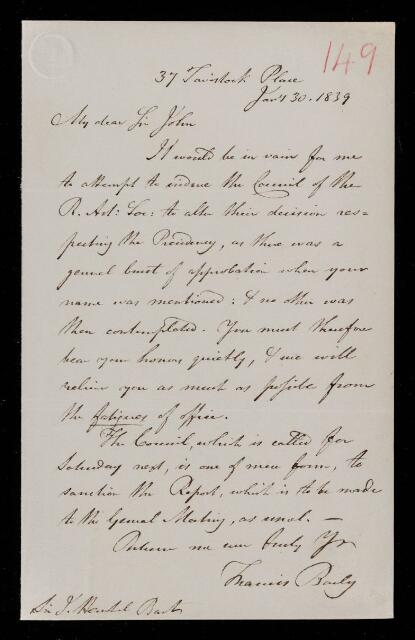 149
37 Tavistock Place
Jany 30. 1839
My dear Sir John
It would be in vain for me
to attempt to induce the Council of the
R. Ast: Soc: to alter their decision res=
pecting the Presidency, as there was a
general burst of approbation when your
name was mentioned: & no other was
then contemplated. You must therefore
bear your honors quietly, & we will
relieve you as much as possible from
the fatigues of office.
The Council, which is called for
Saturday next, is one of mere form, to
sanction the Report, which is to be made
to the General Meeting, as usual. —
Believe me ever truly Yrs
Francis Baily
Sir J. Herschel Bart